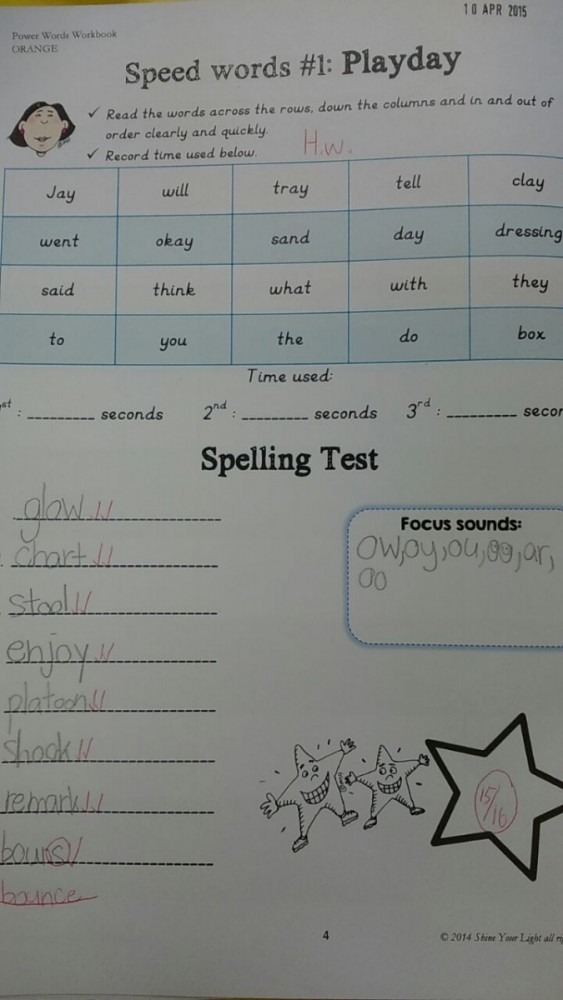 10 APR 2015
Power Words Workbook
ORANGE
Speed words #1: Playday
✓ Read the words across the rows, down the columns and in and out of
order clearly and quickly.
✓ Record time used below.
H.w.
Jay will tray tell clay
went okay sand day dressing
said think what with they
to you the do box
Time used:
st : seconds 2nd : seconds 3rd : secon
Spelling Test
glow
chart
stool
enjoy
platoon
shook
remark
bouns
bounce
Focus sounds:
ow, oy, ou, oo, ar,
oo
15/16
4
© 2014 Shine Your Light all ri